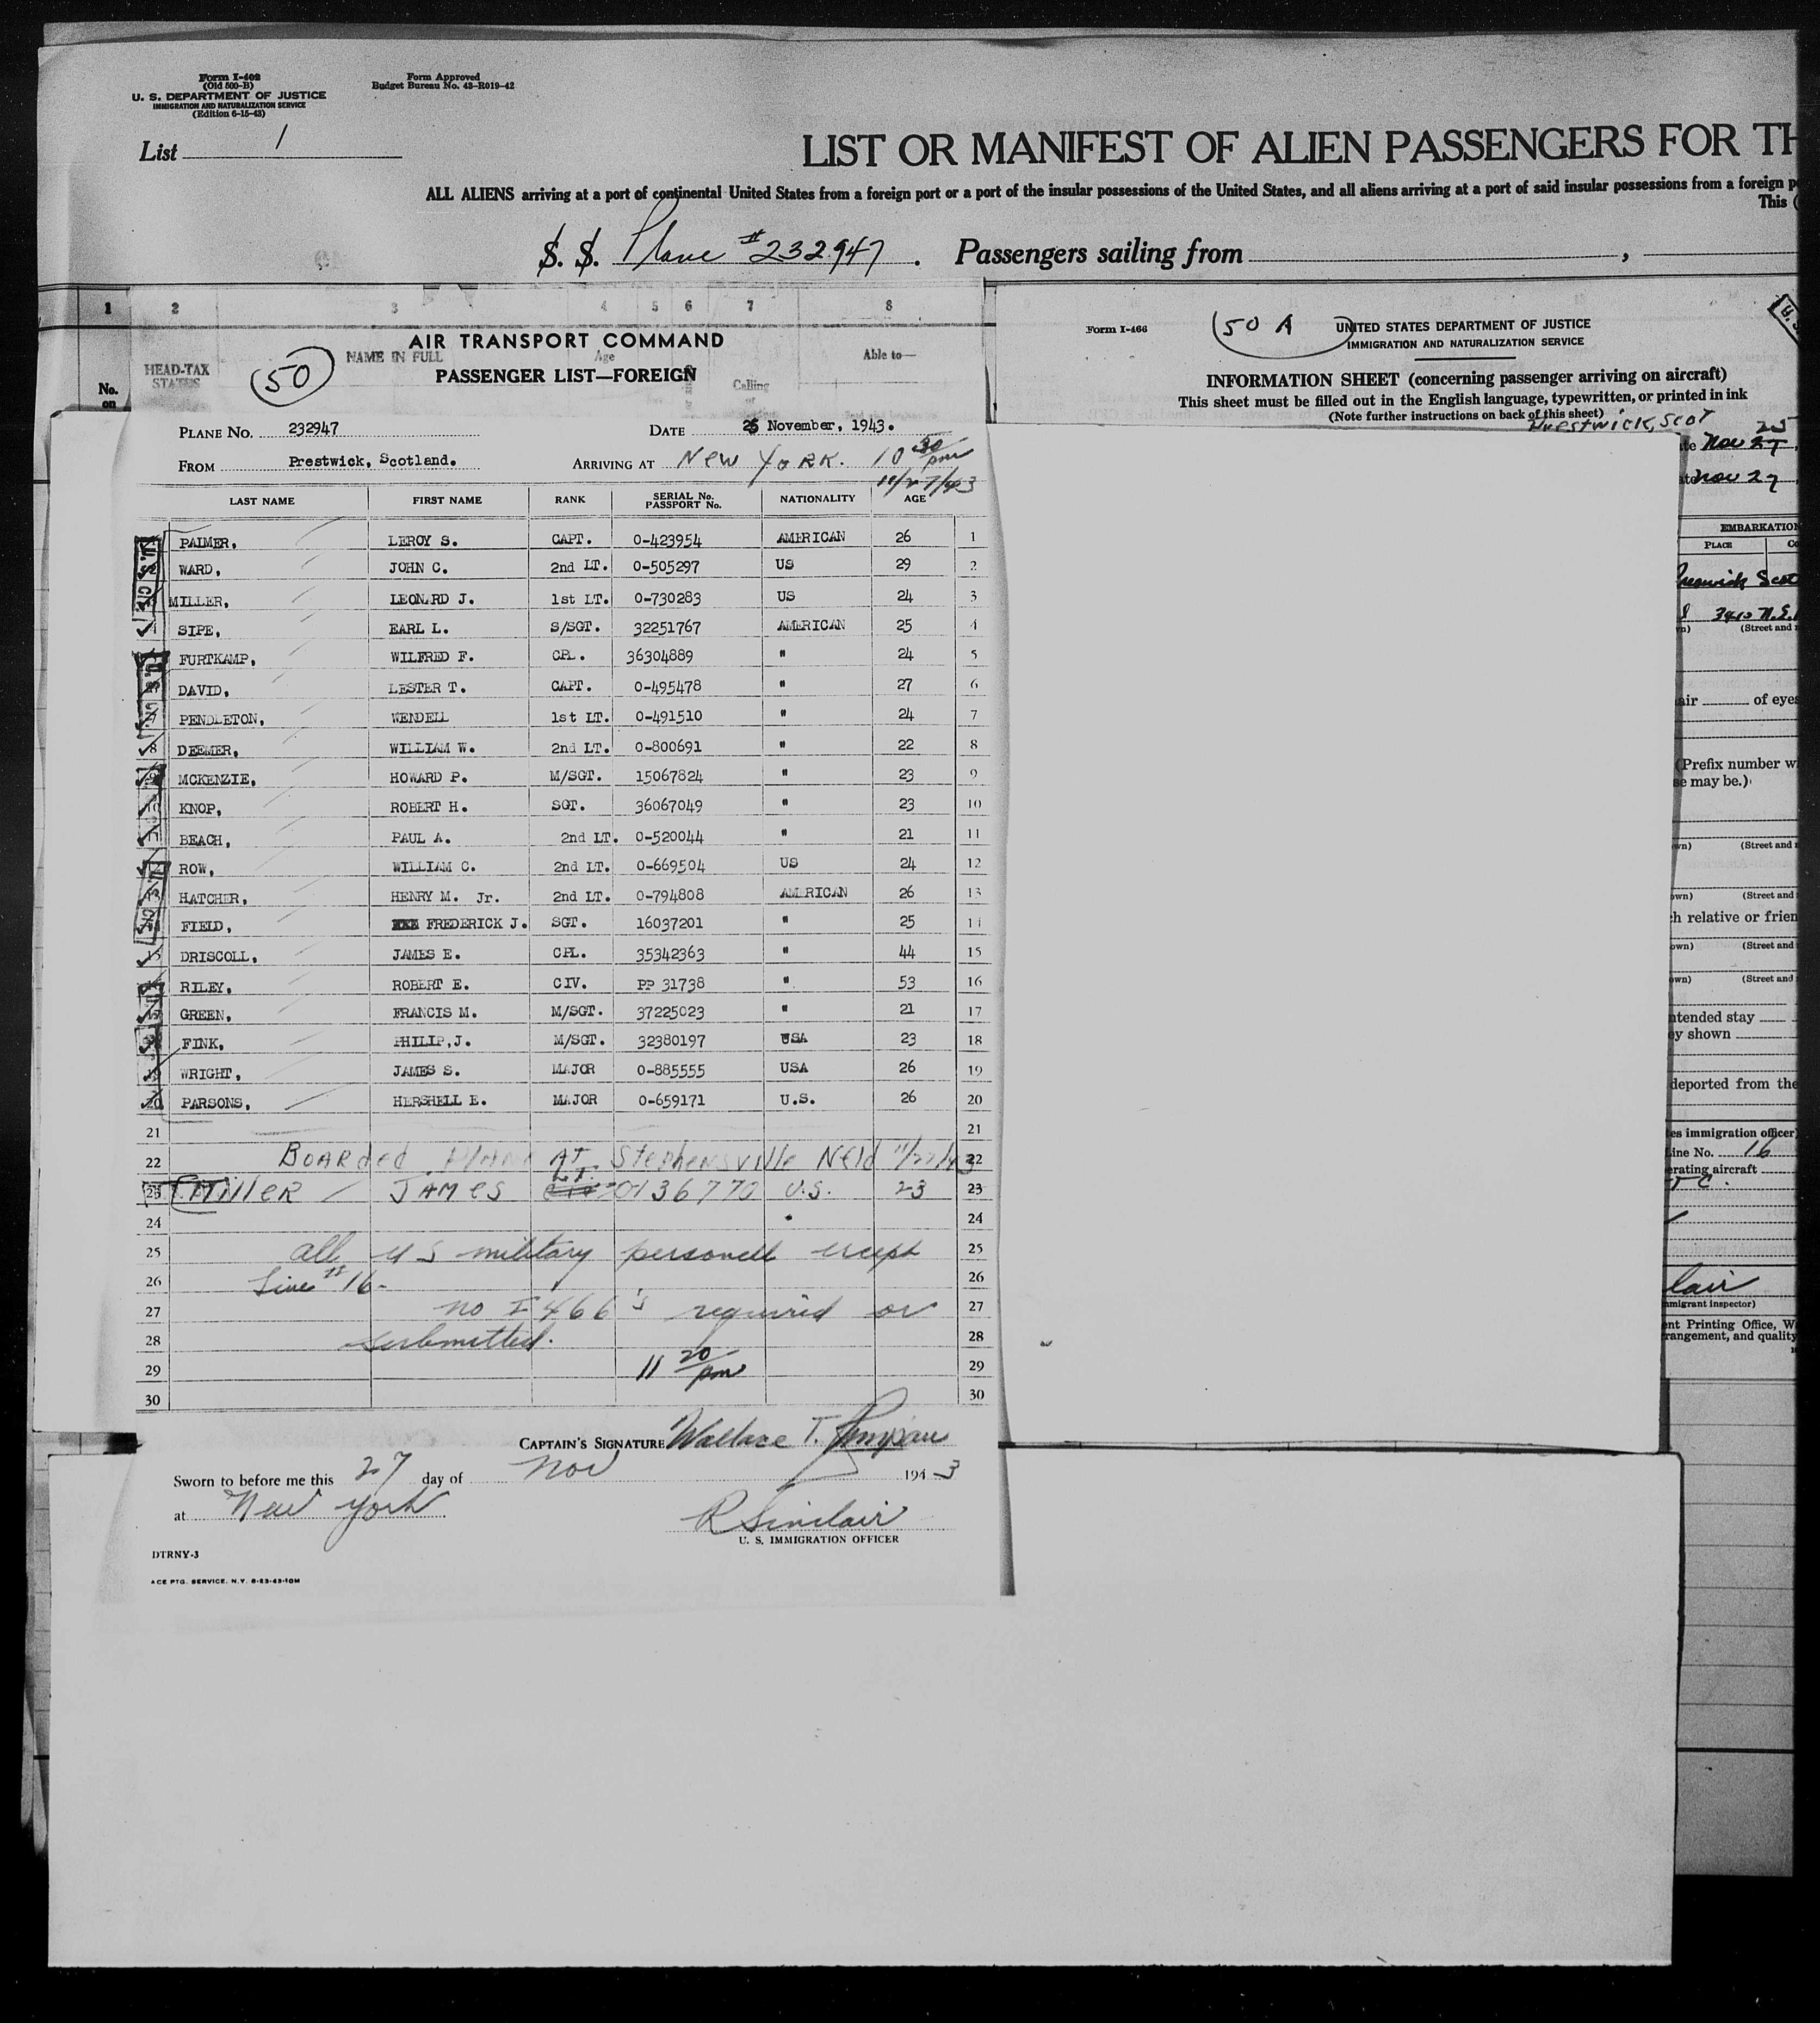 Form I-402
(Old 500-B)
U. S. DEPARTMENT OF JUSTICE
IMMIGRATION AND NATURALIZATION SERVICE
(Edition 6-15-43)
Form Approved
Budget Bureau No. 43-R019-42
List 1
LIST OR MANIFEST OF ALIEN PASSENGERS FOR TH
ALL ALIENS arriving at a port of continental United States from a foreign port or a port of the insular possessions of the United States, and all aliens arriving at a port of said insular possessions from a foreign p
This (
S. S. Plane #232947. Passengers sailing from ,
1 2 3 4 5 6 7 8
HEAD-TAX STATUS
NAME IN FULL
Age
Calling or
Able to—
No. on
50
AIR TRANSPORT COMMAND
PASSENGER LIST—FOREIGN
PLANE NO. 232947 DATE 26 November, 1943.
FROM Prestwick, Scotland. ARRIVING AT NEW YORK. 10 30 pm
11/27/43
LAST NAME FIRST NAME RANK SERIAL No. PASSPORT No. NATIONALITY AGE
PALMER, LEROY S. CAPT. 0-423954 AMERICAN 26 1
WARD, JOHN C. 2nd LT. 0-505297 US 29 2
MILLER, LEONARD J. 1st LT. 0-730283 US 24 3
SIPE, EARL L. S/SGT. 32251767 AMERICAN 25 4
FURTKAMP, WILFRED F. CPL. 36304889 " 24 5
DAVID, LESTER T. CAPT. 0-495478 " 27 6
PENDLETON, WENDELL 1st LT. 0-491510 " 24 7
8 DEEMER, WILLIAM W. 2nd LT. 0-800691 " 22 8
9 MCKENZIE, HOWARD P. M/SGT. 15067824 " 23 9
10 KNOP, ROBERT H. SGT. 36067049 " 23 10
BEACH, PAUL A. 2nd LT. 0-520044 " 21 11
ROW, WILLIAM C. 2nd LT. 0-669504 US 24 12
HATCHER, HENRY M. Jr. 2nd LT. 0-794808 AMERICAN 26 13
FIELD, FREDERICK J. SGT. 16037201 " 25 14
15 DRISCOLL, JAMES E. CPL. 35342363 " 44 15
RILEY, ROBERT E. CIV. PP 31738 " 53 16
GREEN, FRANCIS M. M/SGT. 37225023 " 21 17
FINK, PHILIP,J. M/SGT. 32380197 USA 23 18
19 WRIGHT, JAMES S. MAJOR 0-885555 USA 26 19
20 PARSONS, HERSHELL E. MAJOR 0-659171 U.S. 26 20
21 21
22 BOARded PLANE AT Stephensville Nfld 11/27/43 22
23 MilleR JAMES LT. 0136770 U.S. 23 23
24 24
25 all U S military personell except 25
26 Line # 16- 26
27 no I 466's required or 27
28 submitted. 28
29 11 20 pm 29
30 30
CAPTAIN'S SIGNATURE Wallace T.
Sworn to before me this 27 day of Nov 1943
at New York R Sinclair
U. S. IMMIGRATION OFFICER
DTRNY-3
ACE PTG. SERVICE. N.Y. 8-23-43-10M
Form I-466
50 A
UNITED STATES DEPARTMENT OF JUSTICE
IMMIGRATION AND NATURALIZATION SERVICE
INFORMATION SHEET (concerning passenger arriving on aircraft)
This sheet must be filled out in the English language, typewritten, or printed in ink
(Note further instructions on back of this sheet)
Prestwick, Scot
te Nov 25
ate Nov 27
EMBARKATIO
PLACE Co
Scot
3410 N.E.
wn) (Street and
air of eyes
(Prefix number w
se may be.)
wn) (Street and
own) (Street and
h relative or frien
own) (Street and
own) (Street and
ntended stay
ey shown
deported from the
es immigration officer)
ine No. 16
erating aircraft
T C.
lair
mmigrant inspector)
nt Printing Office, W
rangement, and quality